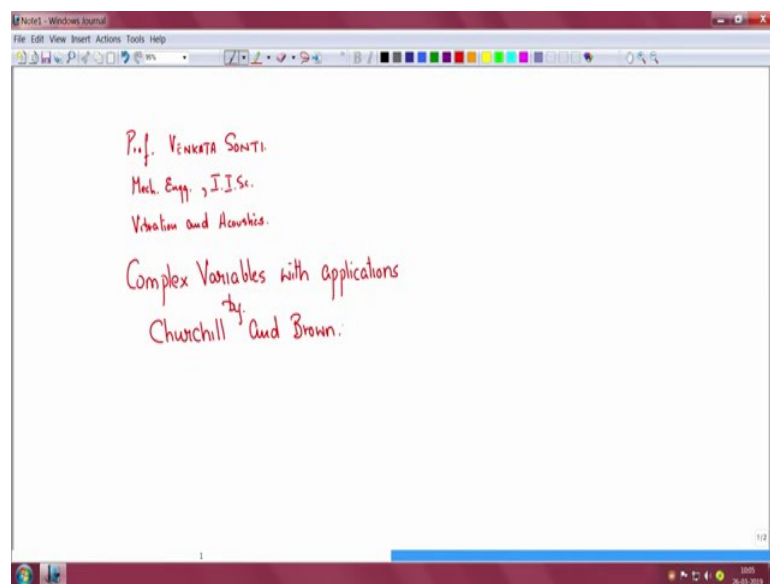 Note1 - Windows Journal
File Edit View Insert Actions Tools Help
Prof. VENKATA SONTI.
Mech. Engg., I.I.Sc.
Vibration and Acoustics.
Complex Variables with applications
by.
Churchill and Brown.
1/2
1
10:05
26-03-2019